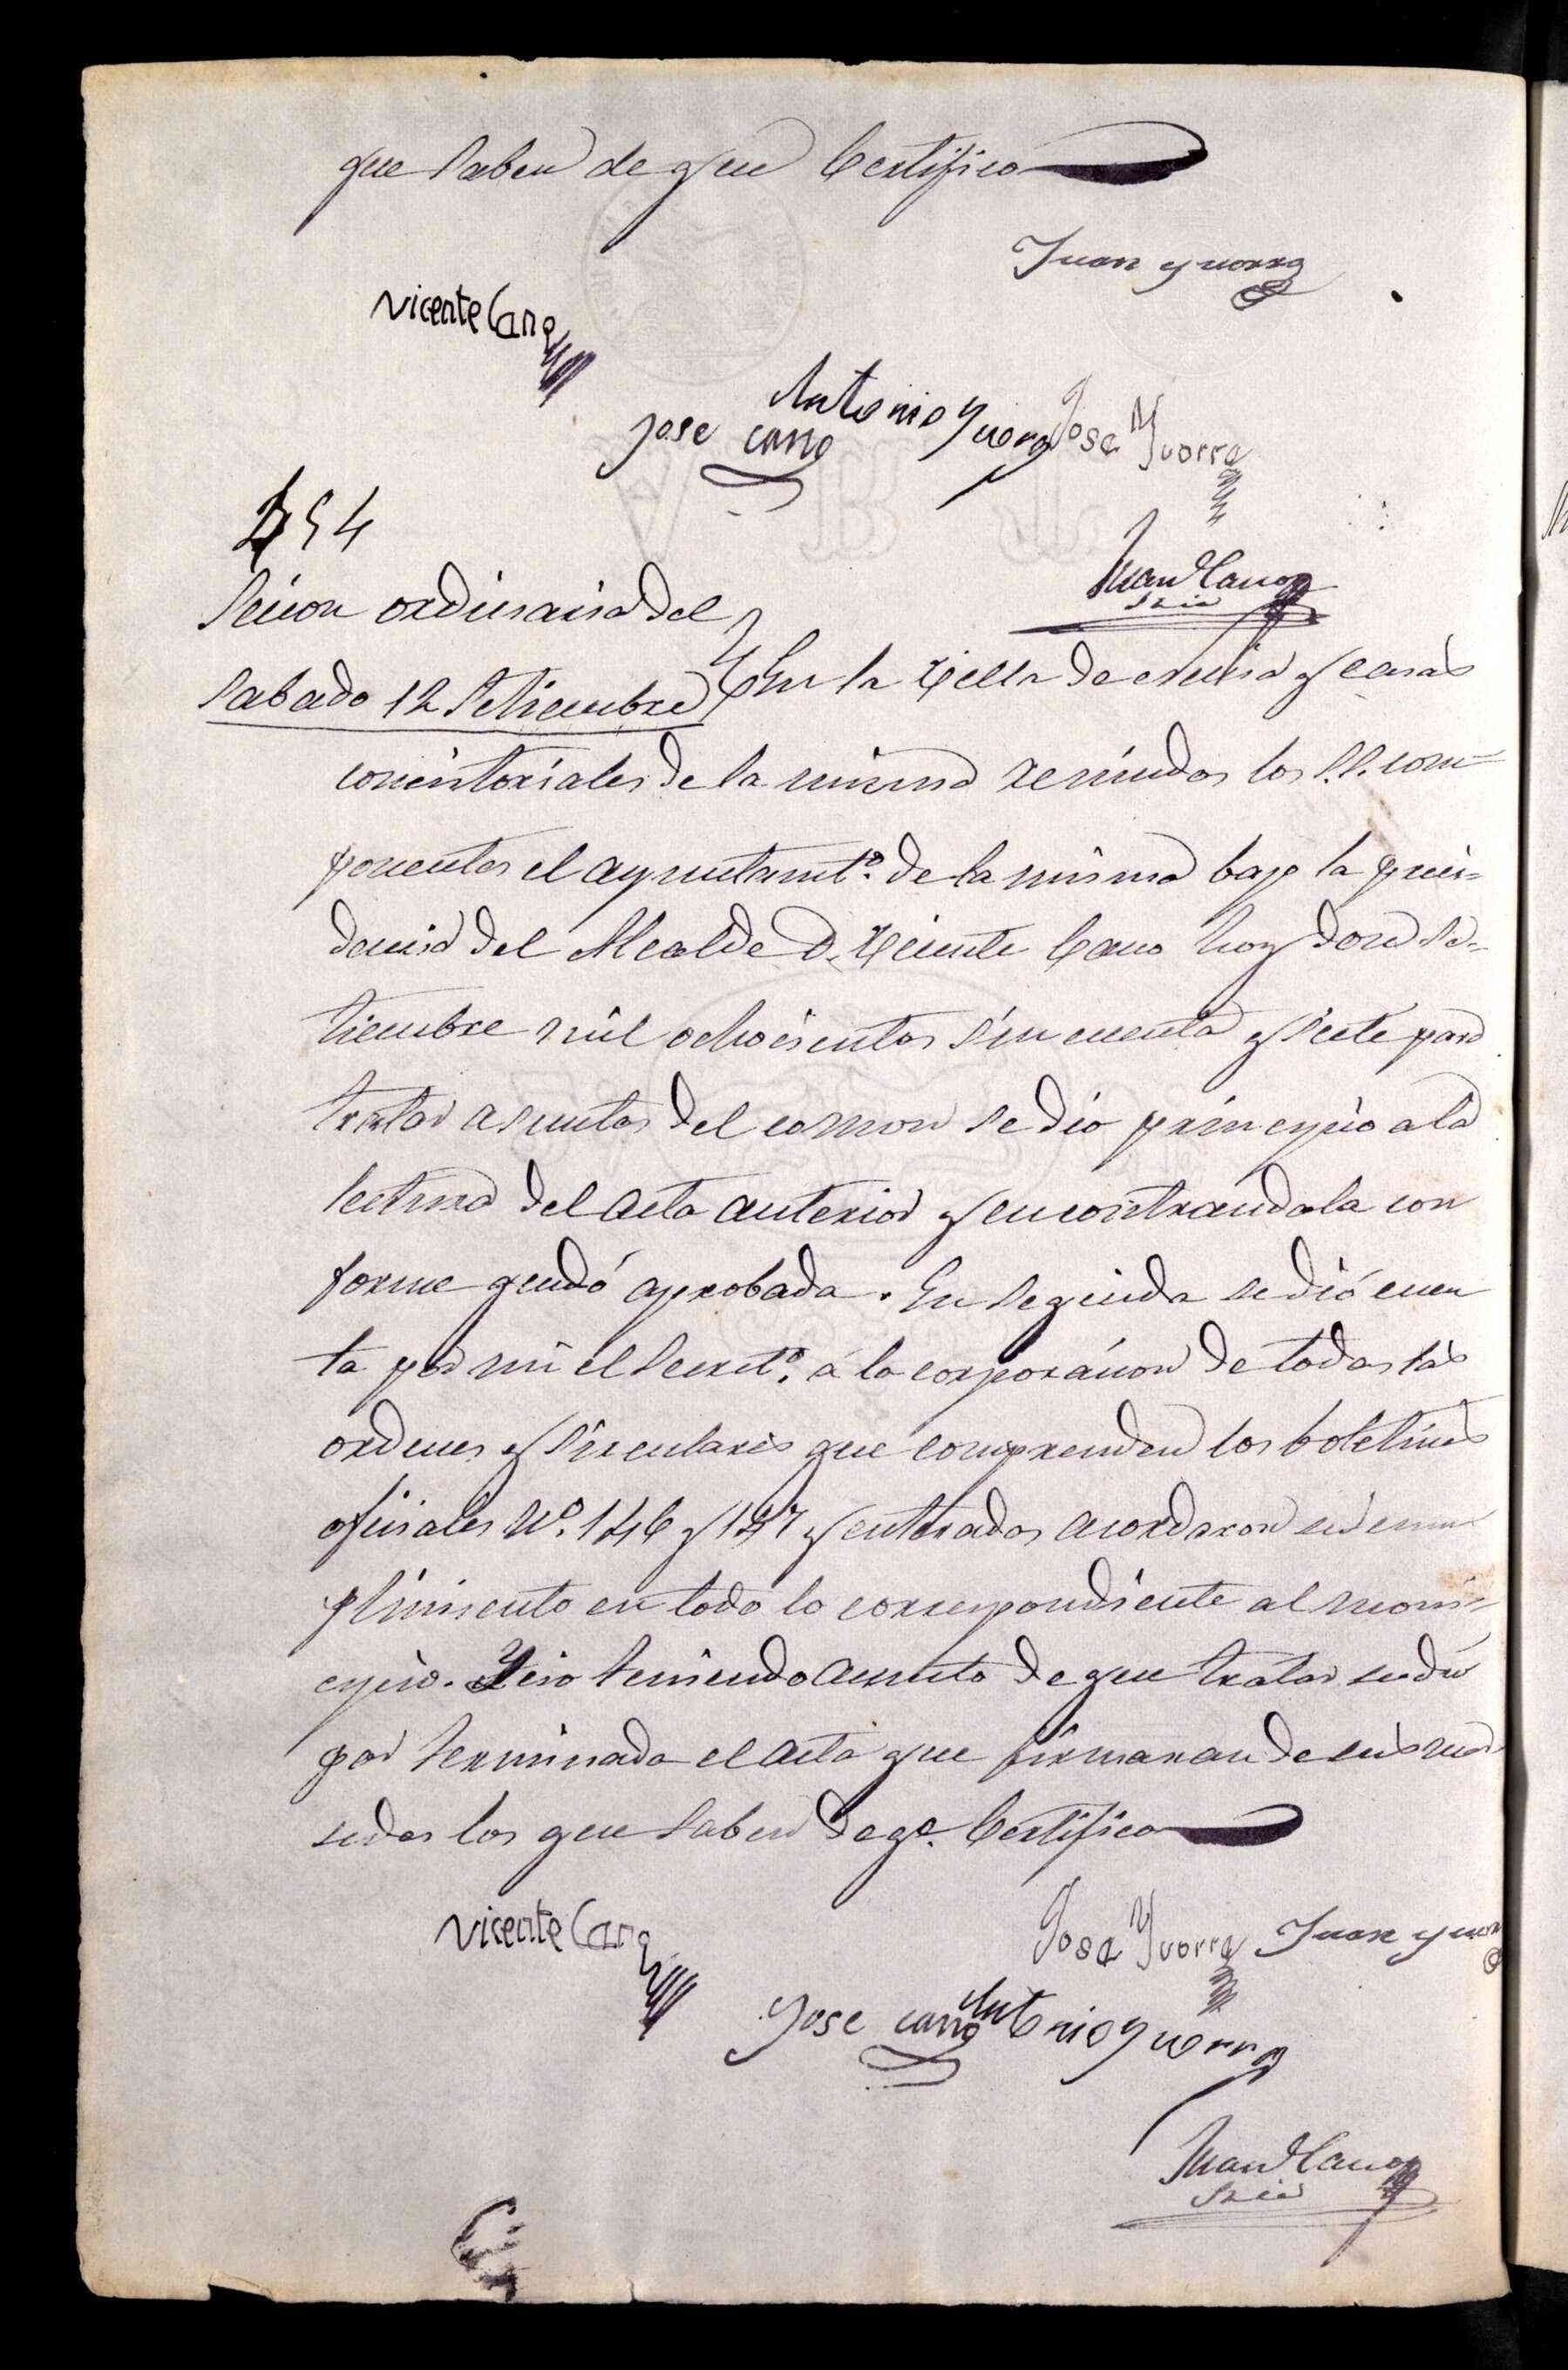 que saben de que Certifico
Juan yvorra
Vicente Cano
Antonio Yvorra
Jose cano
Jose Yvorra
254
Juan Cano
Srio
Secion ordinaria del
sabado 12 Setiembre
En la Villa de y casas
concistoriales de la misma reunidos los S.S. com=
ponentes el ayuntamto. de la misma bajo la preci=
dencia del Alcalde D. Vicente Cano hoy doce Se=
tiembre mil ochocientos sincuenta y siete para
tratar asuntos del comon se dio principio a la
lectura del acta anterior y encontrandola con
forme quedó aprobada. En seguida se dió cuen
ta por mi el Secreto. á la corporacion de todas las
ordenes y sirculares que comprenden los boletines
oficiales No. 146 y 147 y enterados acordaron su cum
plimiento en todo lo correspondiente al moni=
cipio. Y no teniendo asunto de que tratar se dio
por terminada el acta que firmaran de sus mer
sedes los que saben de qe. Certifico
Vicente Cano
Jose Yvorra
Juan yvor
Jose cano
Antonio yvorra
Juan Cano
Srio